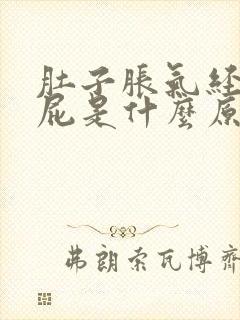 肚子脹氣経
屁是什麼原
弗朗索瓦博齊